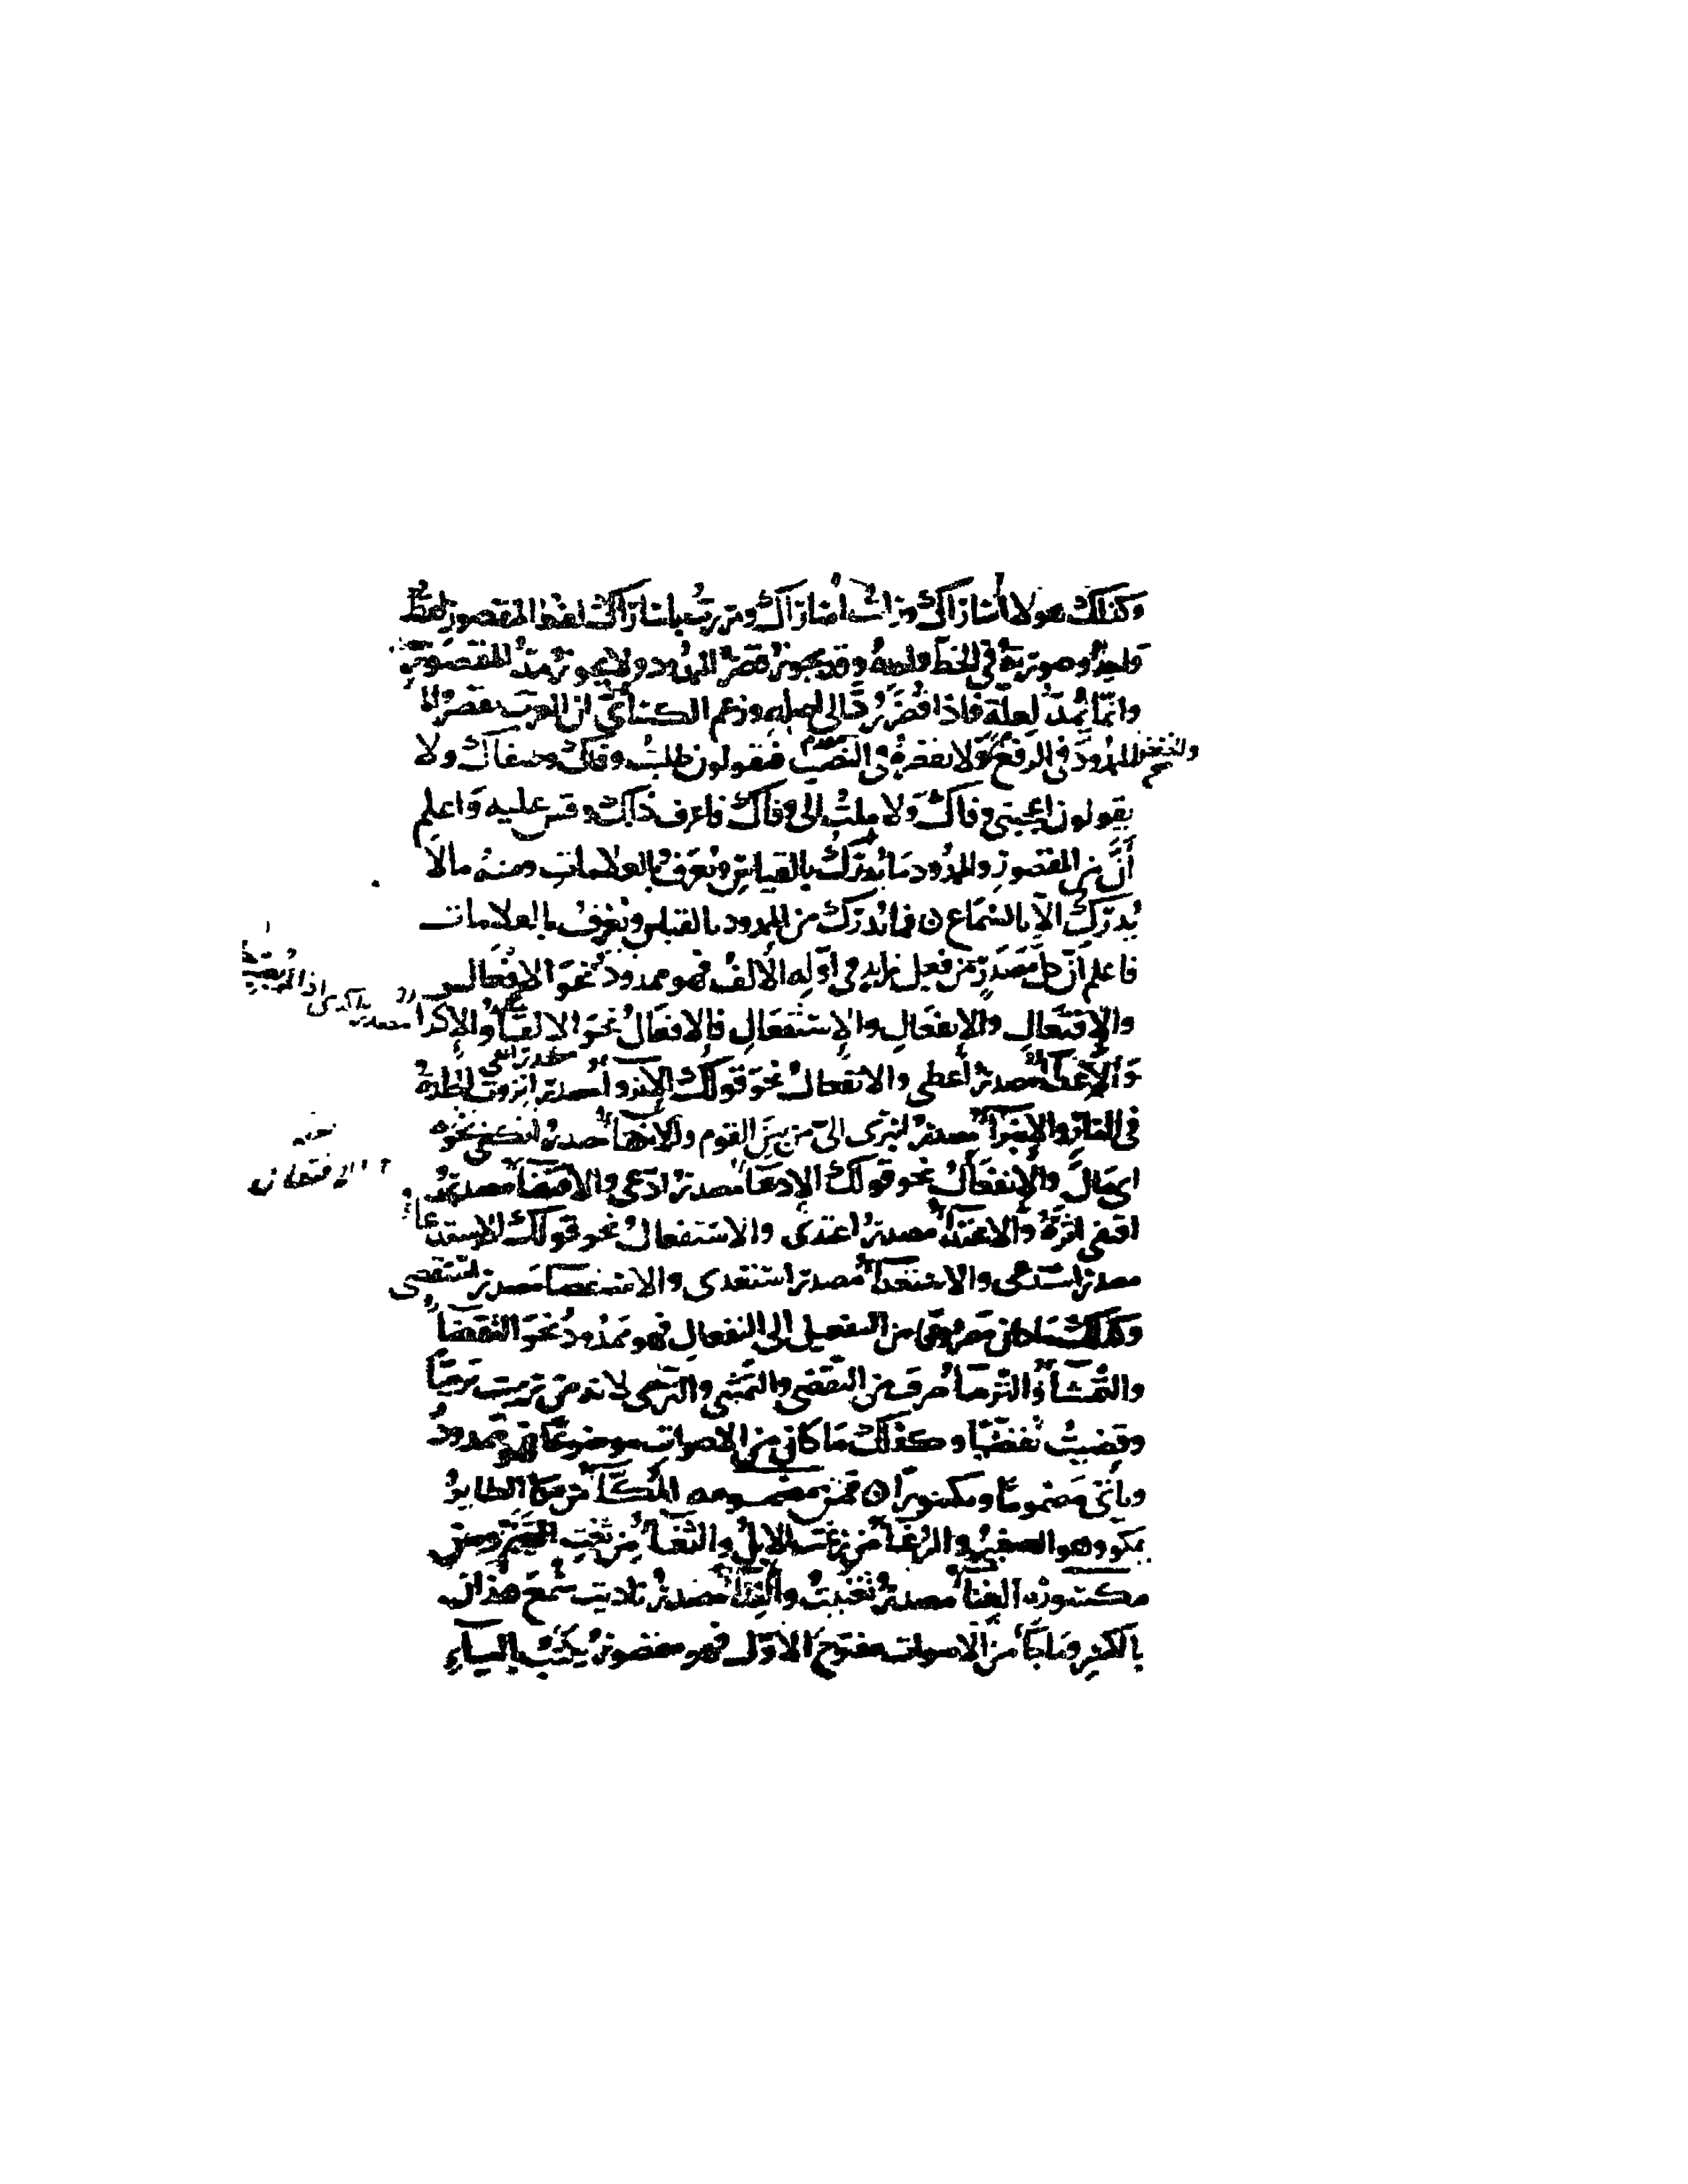 وكذلك هولا أسَارَاكَ ورايت أسَارَاكَ ومررت باسَارَاكَ لفظ المقصور لفظ
واحدٌ وصورته في الخط واحدة وقد يجوز قصر الممدود ولا يجوز مدّ المقصور
وانما يُمدّ لعلّة فاذا قُصِرَ رُدَّ الى اصله وزعم الكسائي ان العرب تقصر
والخفض
الممدود في الرفع ولا تقصره في النصب فتقولون طلبت وفاك وشفاك ولا
يقولون اعجبني وفاك ولا ملت الى وفاك فاعرف ذلك وقس عليه واعلم
أنّ من المقصور والممدود ما يُدرَكُ بالقياس ويُعرَف بالعلامات ومنه مالا
يُدرَكُ الا بالسّماع فما يُدرَك من الممدود بالقياس ويُعرف بالعلامات
فاعلم انّ كل مَصدَرٍ من فعل زايد في اوّله الالفُ فهو ممدود نحو الافعال
والافتعالِ والانفعالِ والاستفعالِ فالافعالُ نحو الالقاء والاكرا
والاعطاء مصدر أعطى والانفعالُ نحو قولك الانزواء مصدر انزوت الجلدة
في النار والانبراءُ مصدر انبرى اليّ من بين القوم والانكفاء مصدر انكفى نحوه
اي مال والافتعال نحو قولك الادعاءُ مصدر ادّعى والاقتفاءُ مصدر
اقتفى اثرهُ والاعتداءُ مصدر اعتدى والاستفعالُ نحو قولك الاستدعاءُ
مصدر استدعى والاستعداءُ مصدر استعدى والاستقصاءُ مصدر استقصى
وكذلك ما كان مصروفًا من التفعيل الى التفعال فهو ممدودٌ نحو التقضاءُ
والتّمشاءُ والترماءُ صرف من التقضي والتمشي والترمي لانه من رميت ترميًا
وقضيت تقضيًا وكذلك ما كان من الاصوات موضوعًا فهو ممدودٌ
وياتي مضمومًا ومكسورًا فمن مضمومه المُكَاءُ من مكا الطايرُ
يمكو وهو الصفير والرُّغاءُ من رغت الابلُ والثُّغاءُ من ثغتِ الغنم ومن
مكسوره الغِناءُ مصدر تغنّيت والنِّداءُ مصدر ناديت سُمِعَ هذان
بالكسر وما جاء من الاصوات مفتوح الاوّل فهو مقصورٌ يكتب بالياءِ